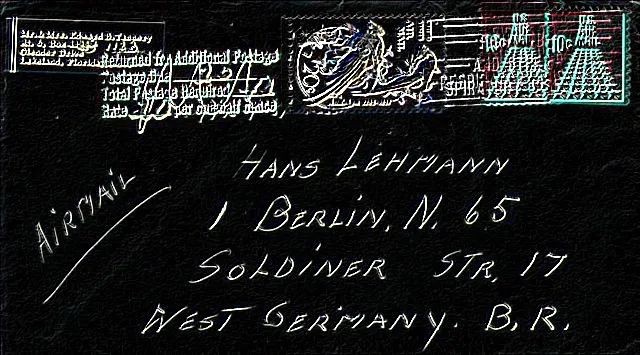 Mr. & Mrs. Edward B.
Rt. 6, Box
Lakeland, Florida
Returned for Additional Postage
Postage Due
Total Postage Required
Rate per one-half ounce
10c
10c
HANS LEHMANN
AIRMAIL
1 BERLIN, N. 65
SOLDINER STR, 17
WEST GERMANY. B.R.